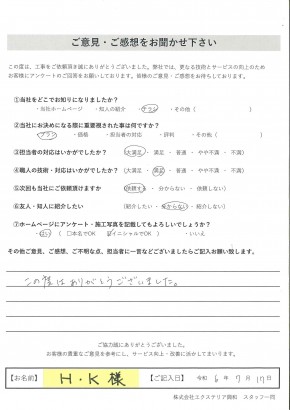 ご意見・ご感想をお聞かせ下さい
この度は、工事をご依頼頂き誠にありがとうございます。弊社では、更なる技術とサービスの向上のため
お客様にアンケートのご回答をお願いしております。皆様のご意見・ご感想をお待ちしております。
①当社をどこでお知りになりましたか?
・当社ホームページ ・知人の紹介 ・チラシ ・その他（ ）
②当社にお決めになる際に重要視された事は何ですか?
・プラン ・価格 ・担当者の対応 ・評判 ・その他（ ）
③担当者の対応はいかがでしたか? （大満足 ・ 満足 ・ 普通 ・ やや不満 ・ 不満）
④職人の技術・対応はいかがでしたか? （大満足 ・ 満足 ・ 普通 ・ やや不満 ・ 不満）
⑤次回も当社にご依頼頂けますか （依頼する ・ 分からない ・ 依頼しない）
⑥友人・知人に紹介したい （紹介したい ・ 分からない ・ 紹介しない）
⑦ホームページにアンケート・施工写真を記載してもよろしいでしょうか?
・はい （ □本名でOK ☑イニシャルでOK ） ・いいえ
その他ご意見、ご感想、ご不明な点、担当者に一言などございましたらご記入お願い致します。
この度はありがとうございました。
ご協力誠にありがとうございます。
お客様の貴重なご意見を参考にし、サービス向上・改善に活かしてまいります。
【お名前】 H・K 様 【ご記入日】 令和 6年 7月 17日
株式会社エクステリア興和 スタッフ一同